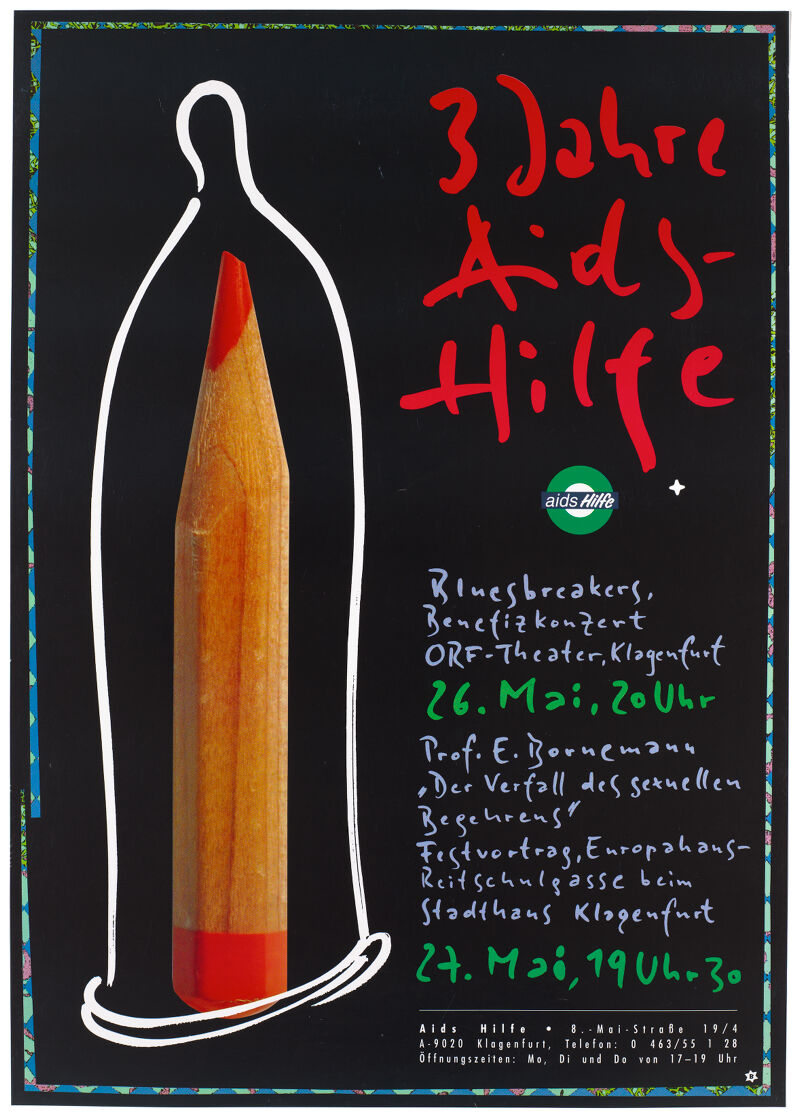 3 Jahre
Aids-
Hilfe
aids Hilfe
Bluesbreakers,
Benefizkonzert
ORF-Theater, Klagenfurt
26. Mai, 20 Uhr
Prof. E. Bornemann
„Der Verfall des sexuellen
Begehrens"
Festvortrag, Europahaus-
Reitschulgasse beim
Stadthaus Klagenfurt
27. Mai, 19 Uhr 30
Aids Hilfe • 8.-Mai-Straße 19/4
A-9020 Klagenfurt, Telefon: 0 463/55 1 28
Öffnungszeiten: Mo, Di und Do von 17–19 Uhr